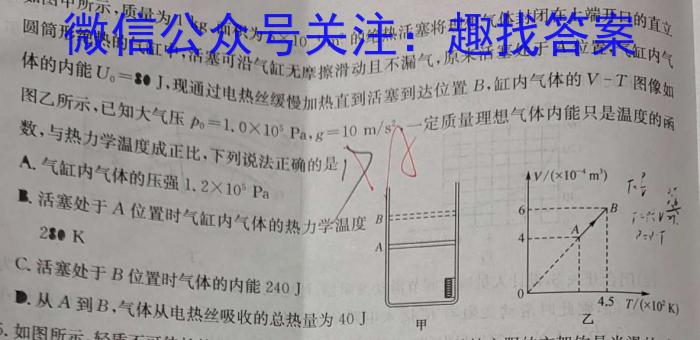 微信公众号关注：趣找答案
如图甲所示,质量为
的绝热活塞将
气体封闭在上端开口的直立
圆筒形
活塞可沿气缸无摩擦滑动且不漏气,原来活塞处于A位置
气缸内气
体的内能U₀=80 J,现通过电热丝缓慢加热直到活塞到达位置B,缸内气体的V-T图像如
图乙所示,已知大气压 p₀=1.0×10⁵ Pa,g=10 m/s²,一定质量理想气体内能只是温度的函
数,与热力学温度成正比,下列说法正确的是
A. 气缸内气体的压强1.2×10⁵ Pa
B. 活塞处于A位置时气缸内气体的热力学温度
K
C. 活塞处于B位置时气体的内能240 J
D. 从A到B,气体从电热丝吸收的总热量为40 J
B
A
甲
V/(×10⁻⁴ m³)
6
B
4
A
0
4.5 T/(×10² K)
乙
5. 如图所示